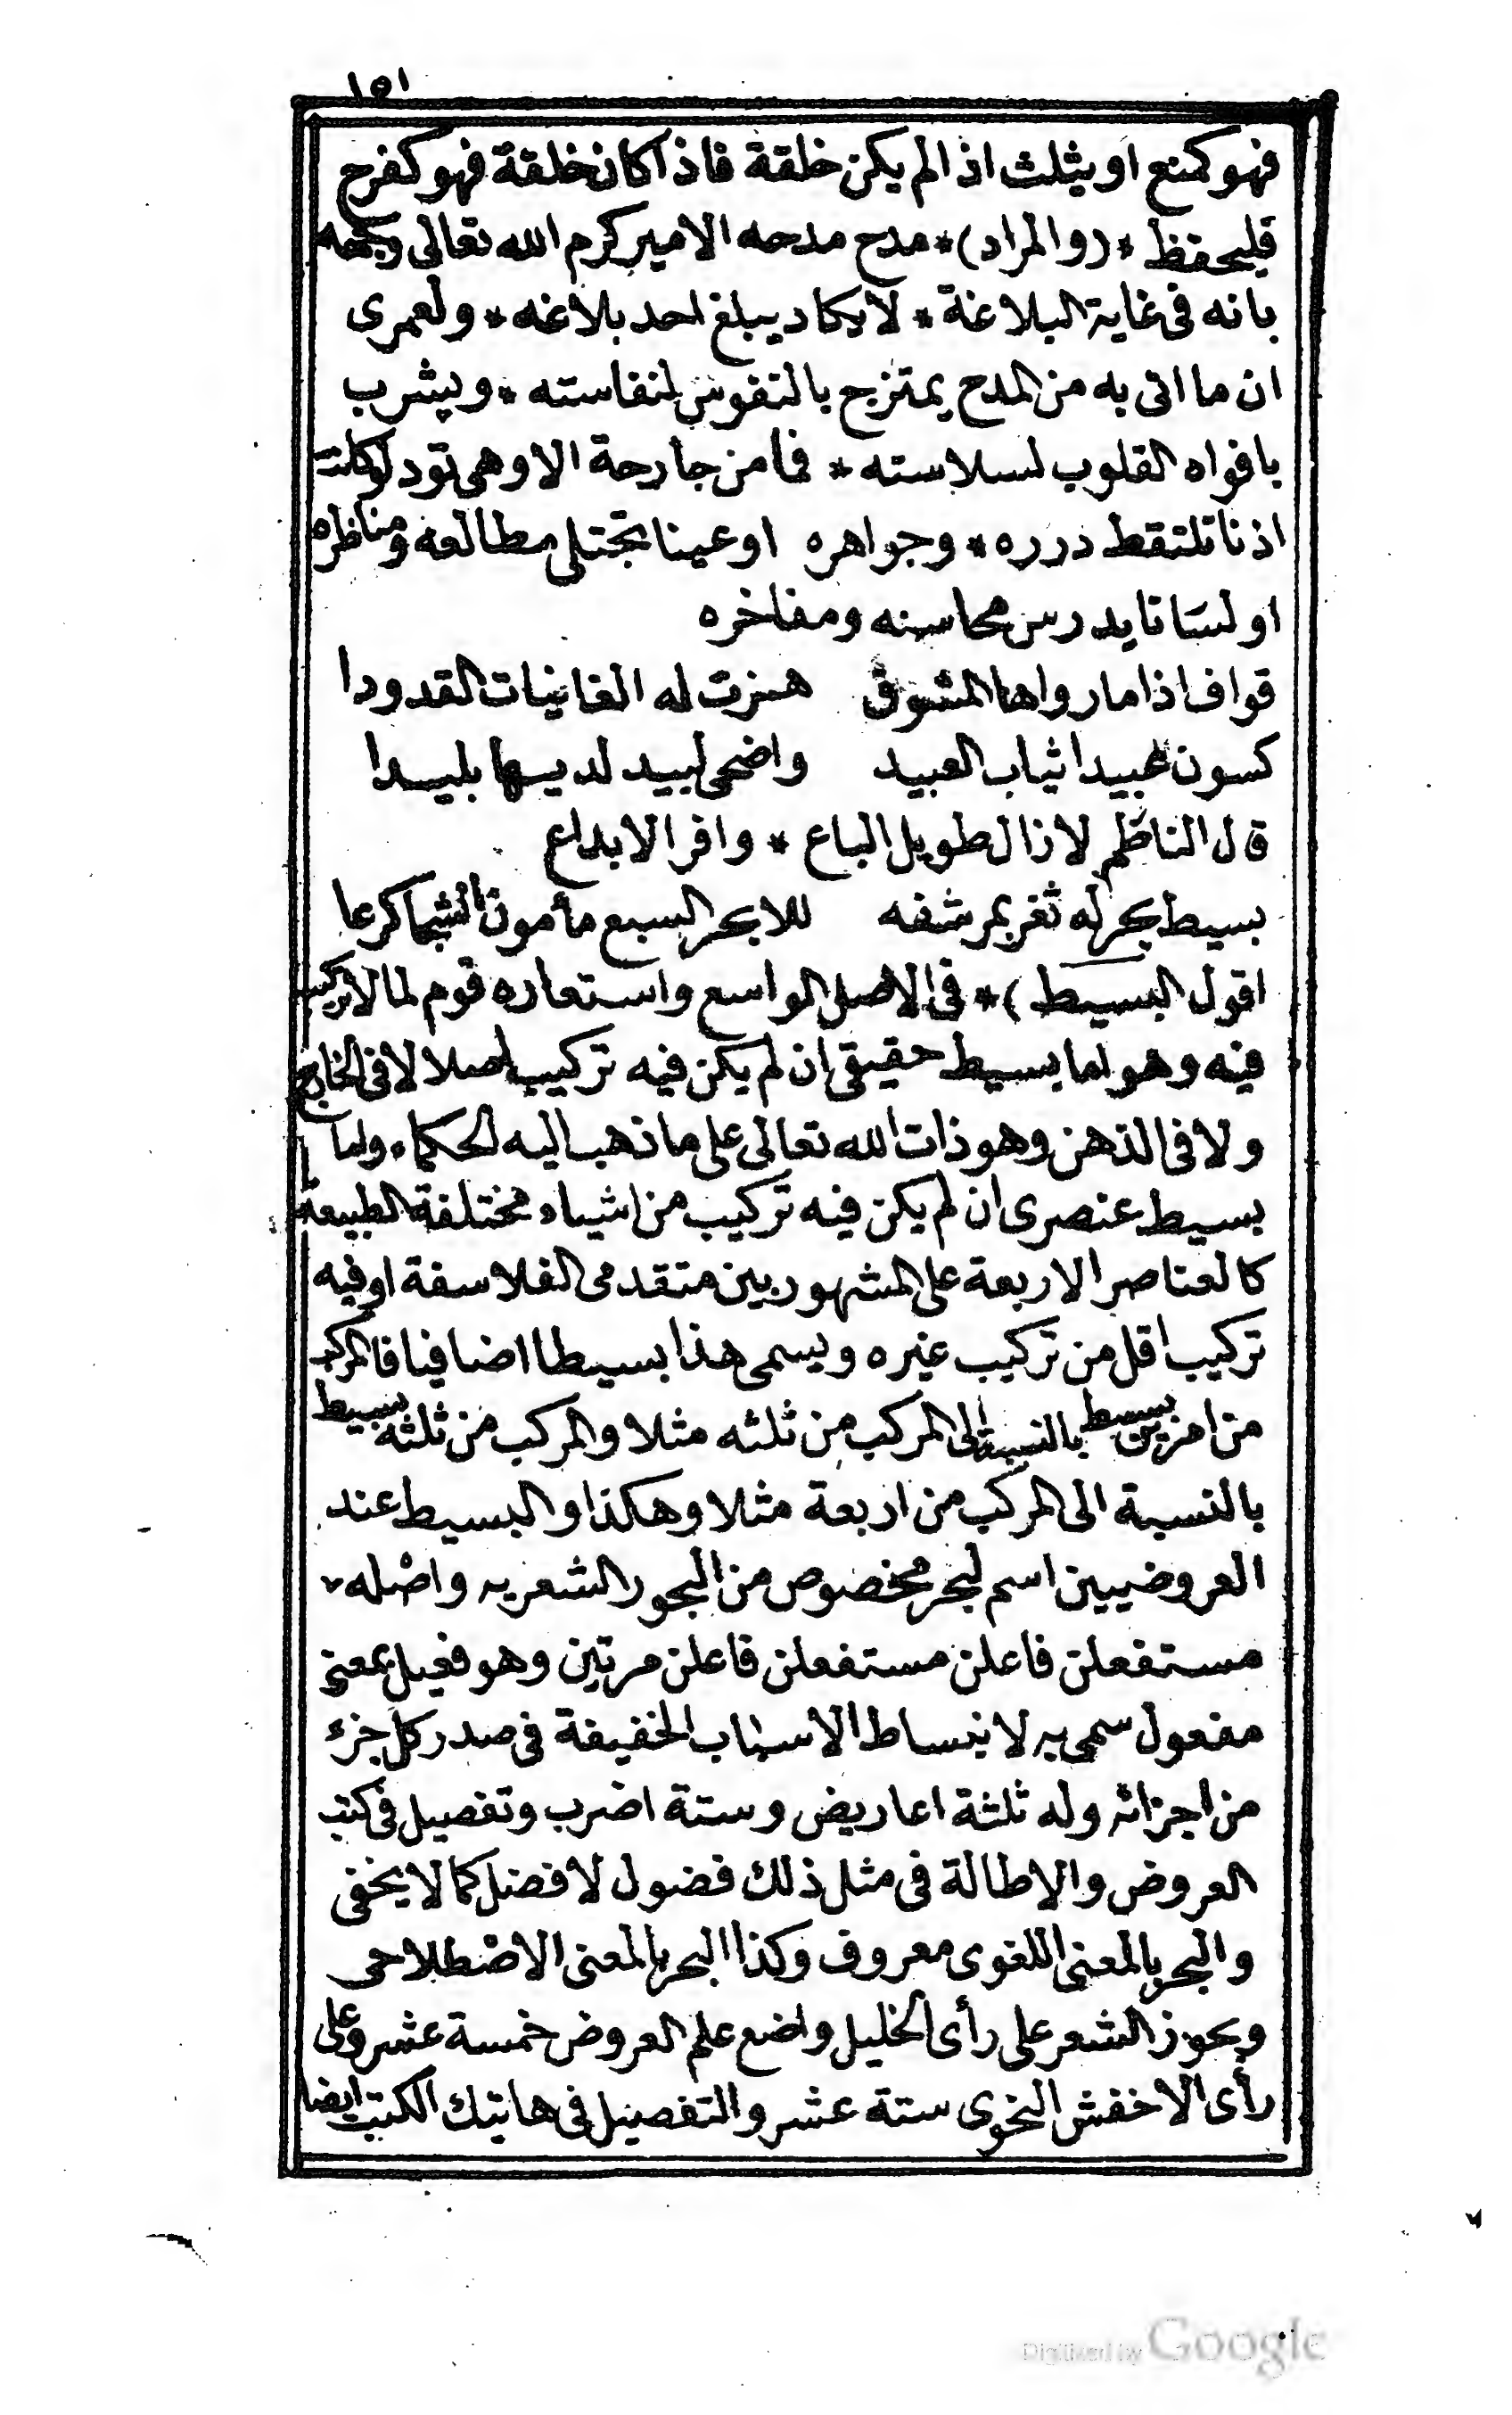 ١٥١
فهو كمنع او يثلث اذا لم يكن خلقة فاذا كان خلقة فهو كفرح
فليحفظ * (والمراد) * مدح مدحه الامير كرم الله تعالى وجهه
بانه فى غاية البلاغة * لا يكاد يبلغ احد بلاغه * ولعمرى
ان ما اتى به من المدح يمتزج بالنفوس لنفاسته * ويشرب
بافواه القلوب لسلاسته * فما من جارحة الا وهى تود لو كانت
اذنا تلتقط درره * وجواهره او عينا تجتلى مطالعه ومناظره
او لسانا يدرس محاسنه ومفاخره
قواف اذا ما رواها المشوق هزت له الغانيات القدودا
كسون عبيدا ثياب العبيد واضحى لبيد لديها بليدا
قال الناظم لازال طويل الباع * وافر الابداع
بسيط بحر له ثغر بمرشفه للابحر السبع مأمون الشجا كرعا
اقول البسيط) * فى الاصل الواسع واستعاره قوم لما لا تركيب
فيه وهو اما بسيط حقيقى ان لم يكن فيه تركيب اصلا لا فى الخارج
ولا فى الذهن وهو ذات الله تعالى على ما ذهب اليه الحكماء واما
بسيط عنصرى ان لم يكن فيه تركيب من اشياء مختلفة الطبيعة
كالعناصر الاربعة على المشهور بين متقدمى الفلاسفة او فيه
تركيب اقل من تركيب غيره ويسمى هذا بسيطا اضافيا فالمركب
من امرين بسيط بالنسبة الى المركب من ثلثه مثلا والمركب من ثلثه بسيط
بالنسبة الى المركب من اربعة مثلا وهكذا والبسيط عند
العروضيين اسم لبحر مخصوص من البحور الشعريه واصله
مستفعلن فاعلن مستفعلن فاعلن مرتين وهو فعيل بمعنى
مفعول سمى به لانبساط الاسباب الخفيفة فى صدر كل جزء
من اجزائه وله ثلثة اعاريض وستة اضرب وتفصيل فى كتب
العروض والاطالة فى مثل ذلك فضول لا فضل كما لا يخفى
والبحر بالمعنى اللغوى معروف وكذا البحر بالمعنى الاصطلاحى
وبحور الشعر على رأى الخليل واضع علم العروض خمسة عشر وعلى
رأى الاخفش النحوى ستة عشر والتفصيل فى هاتيك الكتب ايضا
Digitized by Google